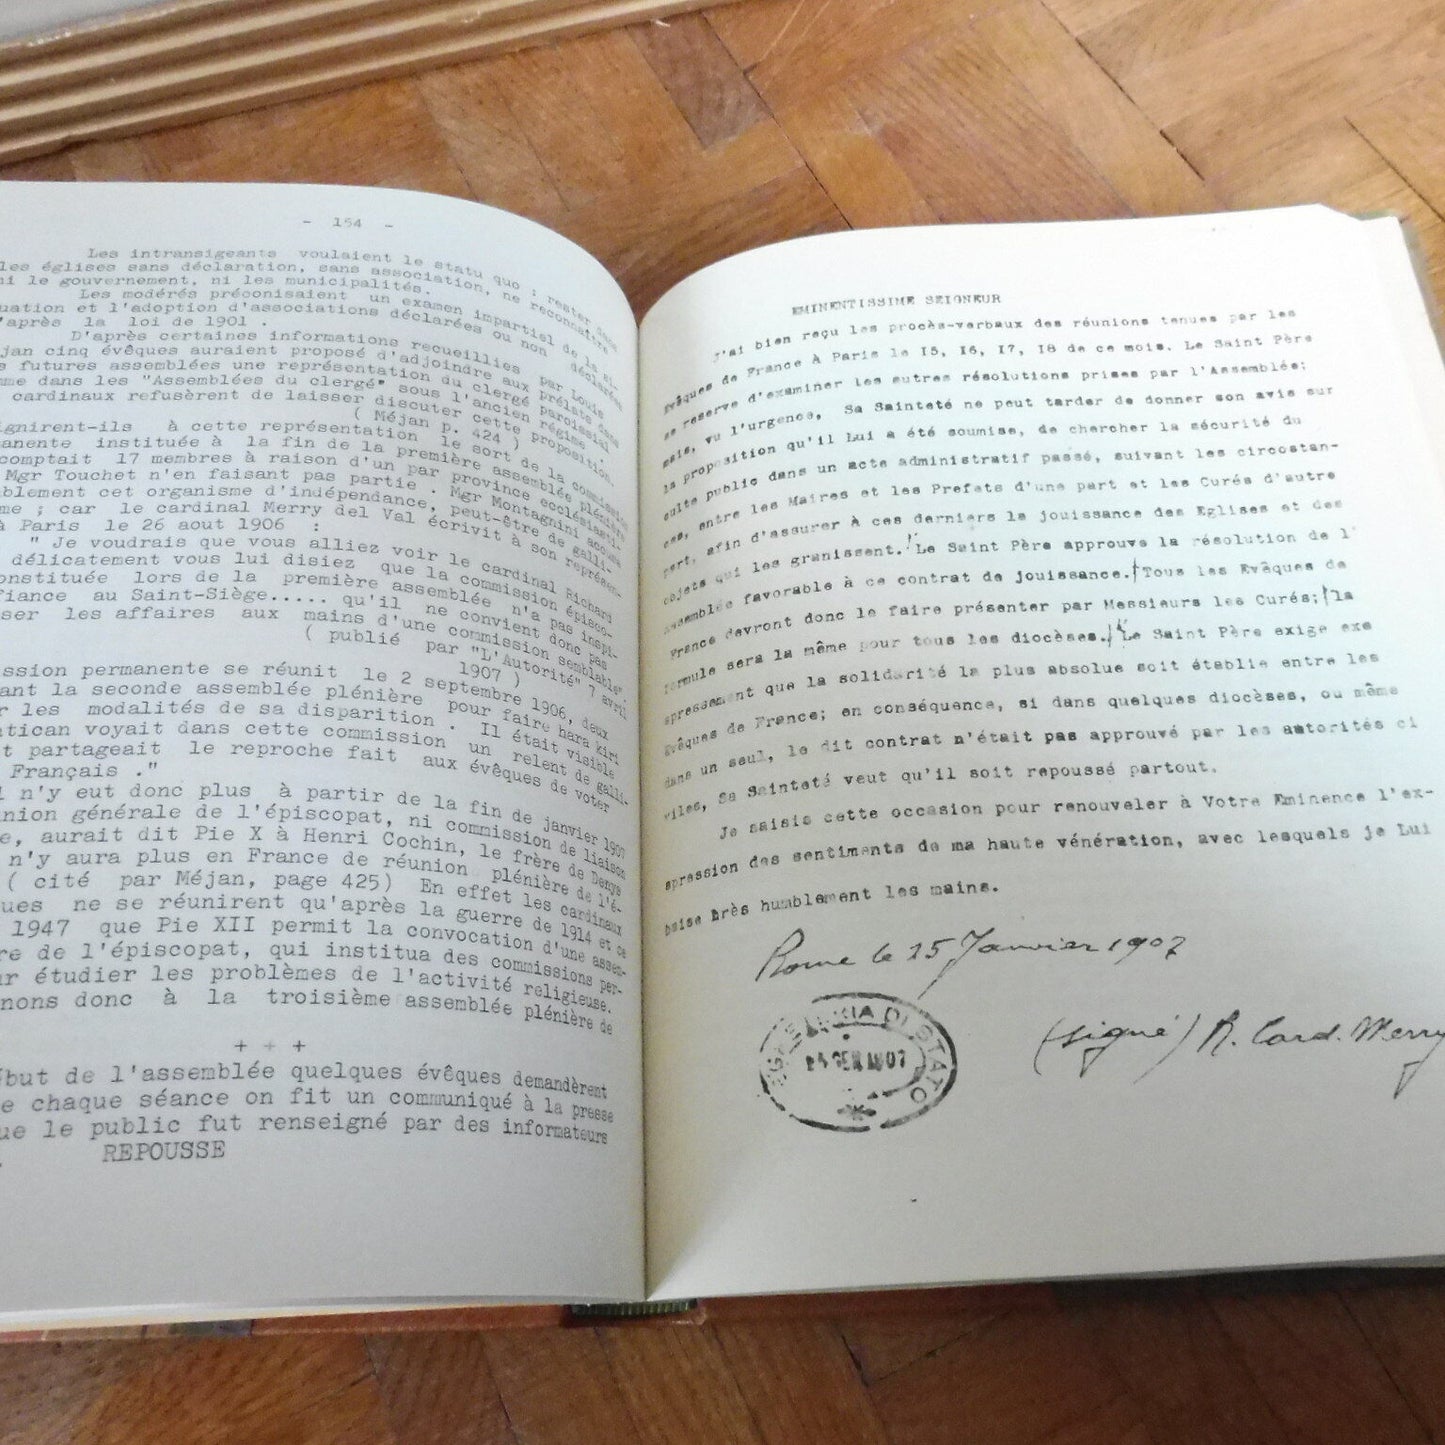 - 154 -
Les intransigeants voulaient le statu quo : rester dans
les églises sans déclaration, sans association, ne reconnaître
ni le gouvernement, ni les municipalités.
Les modérés préconisaient un examen impartial de la si-
uation et l'adoption d'associations déclarées ou non déclarées
'après la loi de 1901 .
D'après certaines informations recueillies par Louis
jan cinq évêques auraient proposé d'adjoindre aux prélats dans
s futures assemblées une représentation du clergé paroissial
me dans les "Assemblées du clergé" sous l'ancien régime .
cardinaux refusèrent de laisser discuter cette proposition.
( Méjan p. 424 )
ignirent-ils à cette représentation le sort de la commission
manente instituée à la fin de la première assemblée plénière
comptait 17 membres à raison d'un par province ecclésiasti-
Mgr Touchet n'en faisant pas partie . Mgr Montagnini accusa
blement cet organisme d'indépendance, peut-être de galli-
me ; car le cardinal Merry del Val écrivit à son représen-
à Paris le 26 aout 1906 :
" Je voudrais que vous alliez voir le cardinal Richard
délicatement vous lui disiez que la commission épisco-
onstituée lors de la première assemblée n'a pas inspi-
fiance au Saint-Siège..... qu'il ne convient donc pas
sser les affaires aux mains d'une commission semblable".
( publié par "L'Autorité" 7 avril
1907 )
ission permanente se réunit le 2 septembre 1906, deux
ant la seconde assemblée plénière pour faire hara kiri
r les modalités de sa disparition . Il était visible
tican voyait dans cette commission un relent de galli-
t partageait le reproche fait aux évêques de voter
Français ."
l n'y eut donc plus à partir de la fin de janvier 1907
union générale de l'épiscopat, ni commission de liaison
e, aurait dit Pie X à Henri Cochin, le frère de Denys
n'y aura plus en France de réunion plénière de l'é-
( cité par Méjan, page 425) En effet les cardinaux
ques ne se réunirent qu'après la guerre de 1914 et ce
1947 que Pie XII permit la convocation d'une assem-
re de l'épiscopat, qui institua des commissions per-
ur étudier les problèmes de l'activité religieuse.
nons donc à la troisième assemblée plénière de
+ + +
ébut de l'assemblée quelques évêques demandèrent
e chaque séance on fit un communiqué à la presse
ue le public fut renseigné par des informateurs
REPOUSSE
EMINENTISSIME SEIGNEUR
J'ai bien reçu les procès-verbaux des réunions tenues par les
Evêques de France à Paris le 15, 16, 17, 18 de ce mois. Le Saint Père
se reserve d'examiner les autres résolutions prises par l'Assemblée;
mais, vu l'urgence, Sa Sainteté ne peut tarder de donner son avis sur
la proposition qu'il Lui a été soumise, de chercher la sécurité du
culte public dans un acte administratif passé, suivant les circostan-
ces, entre les Maires et les Prefets d'une part et les Curés d'autre
part, afin d'assurer à ces derniers la jouissance des Eglises et des
objets qui les granissent. Le Saint Père approuve la résolution de l'
Assemblée favorable à ce contrat de jouissance. Tous les Evêques de
France devront donc le faire présenter par Messieurs les Curés; la
formule sera la même pour tous les diocèses. Le Saint Père exige exe
spressement que la solidarité la plus absolue soit établie entre les
Evêques de France; en conséquence, si dans quelques diocèses, ou même
dans un seul, le dit contrat n'était pas approuvé par les autorités ci
viles, Sa Sainteté veut qu'il soit repoussé partout.
Je saisis cette occasion pour renouveler à Votre Eminence l'ex-
spression des sentiments de ma haute vénération, avec lesquels je Lui
baise très humblement les mains.
Rome le 25 Janvier 1907
(signé) R. Card. Merry
DI STATO
GEN 1907